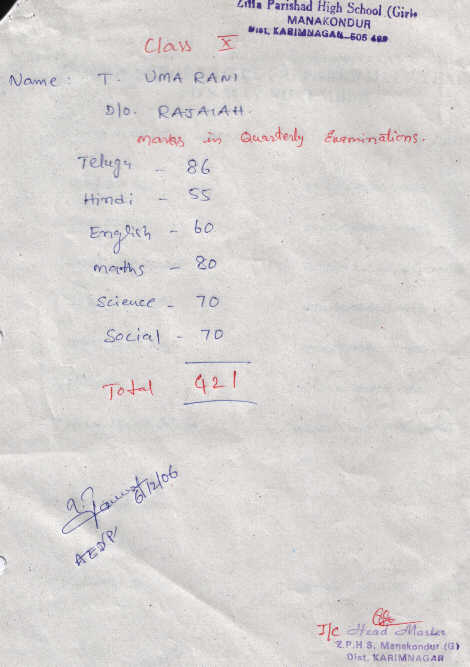 Zilla Parishad High School (Girls
MANAKONDUR
Dist. KARIMNAGAR-505 469
Class X
Name : T. UMA RANI
D/o. RAJAIAH.
Marks in Quarterly Examinations.
Telugu - 86
Hindi - 55
English - 60
maths - 80
Science - 70
Social - 70
Total 421
6/12/06
I/c Head Master
Z.P.H.S. Manakondur (G)
Dist. KARIMNAGAR